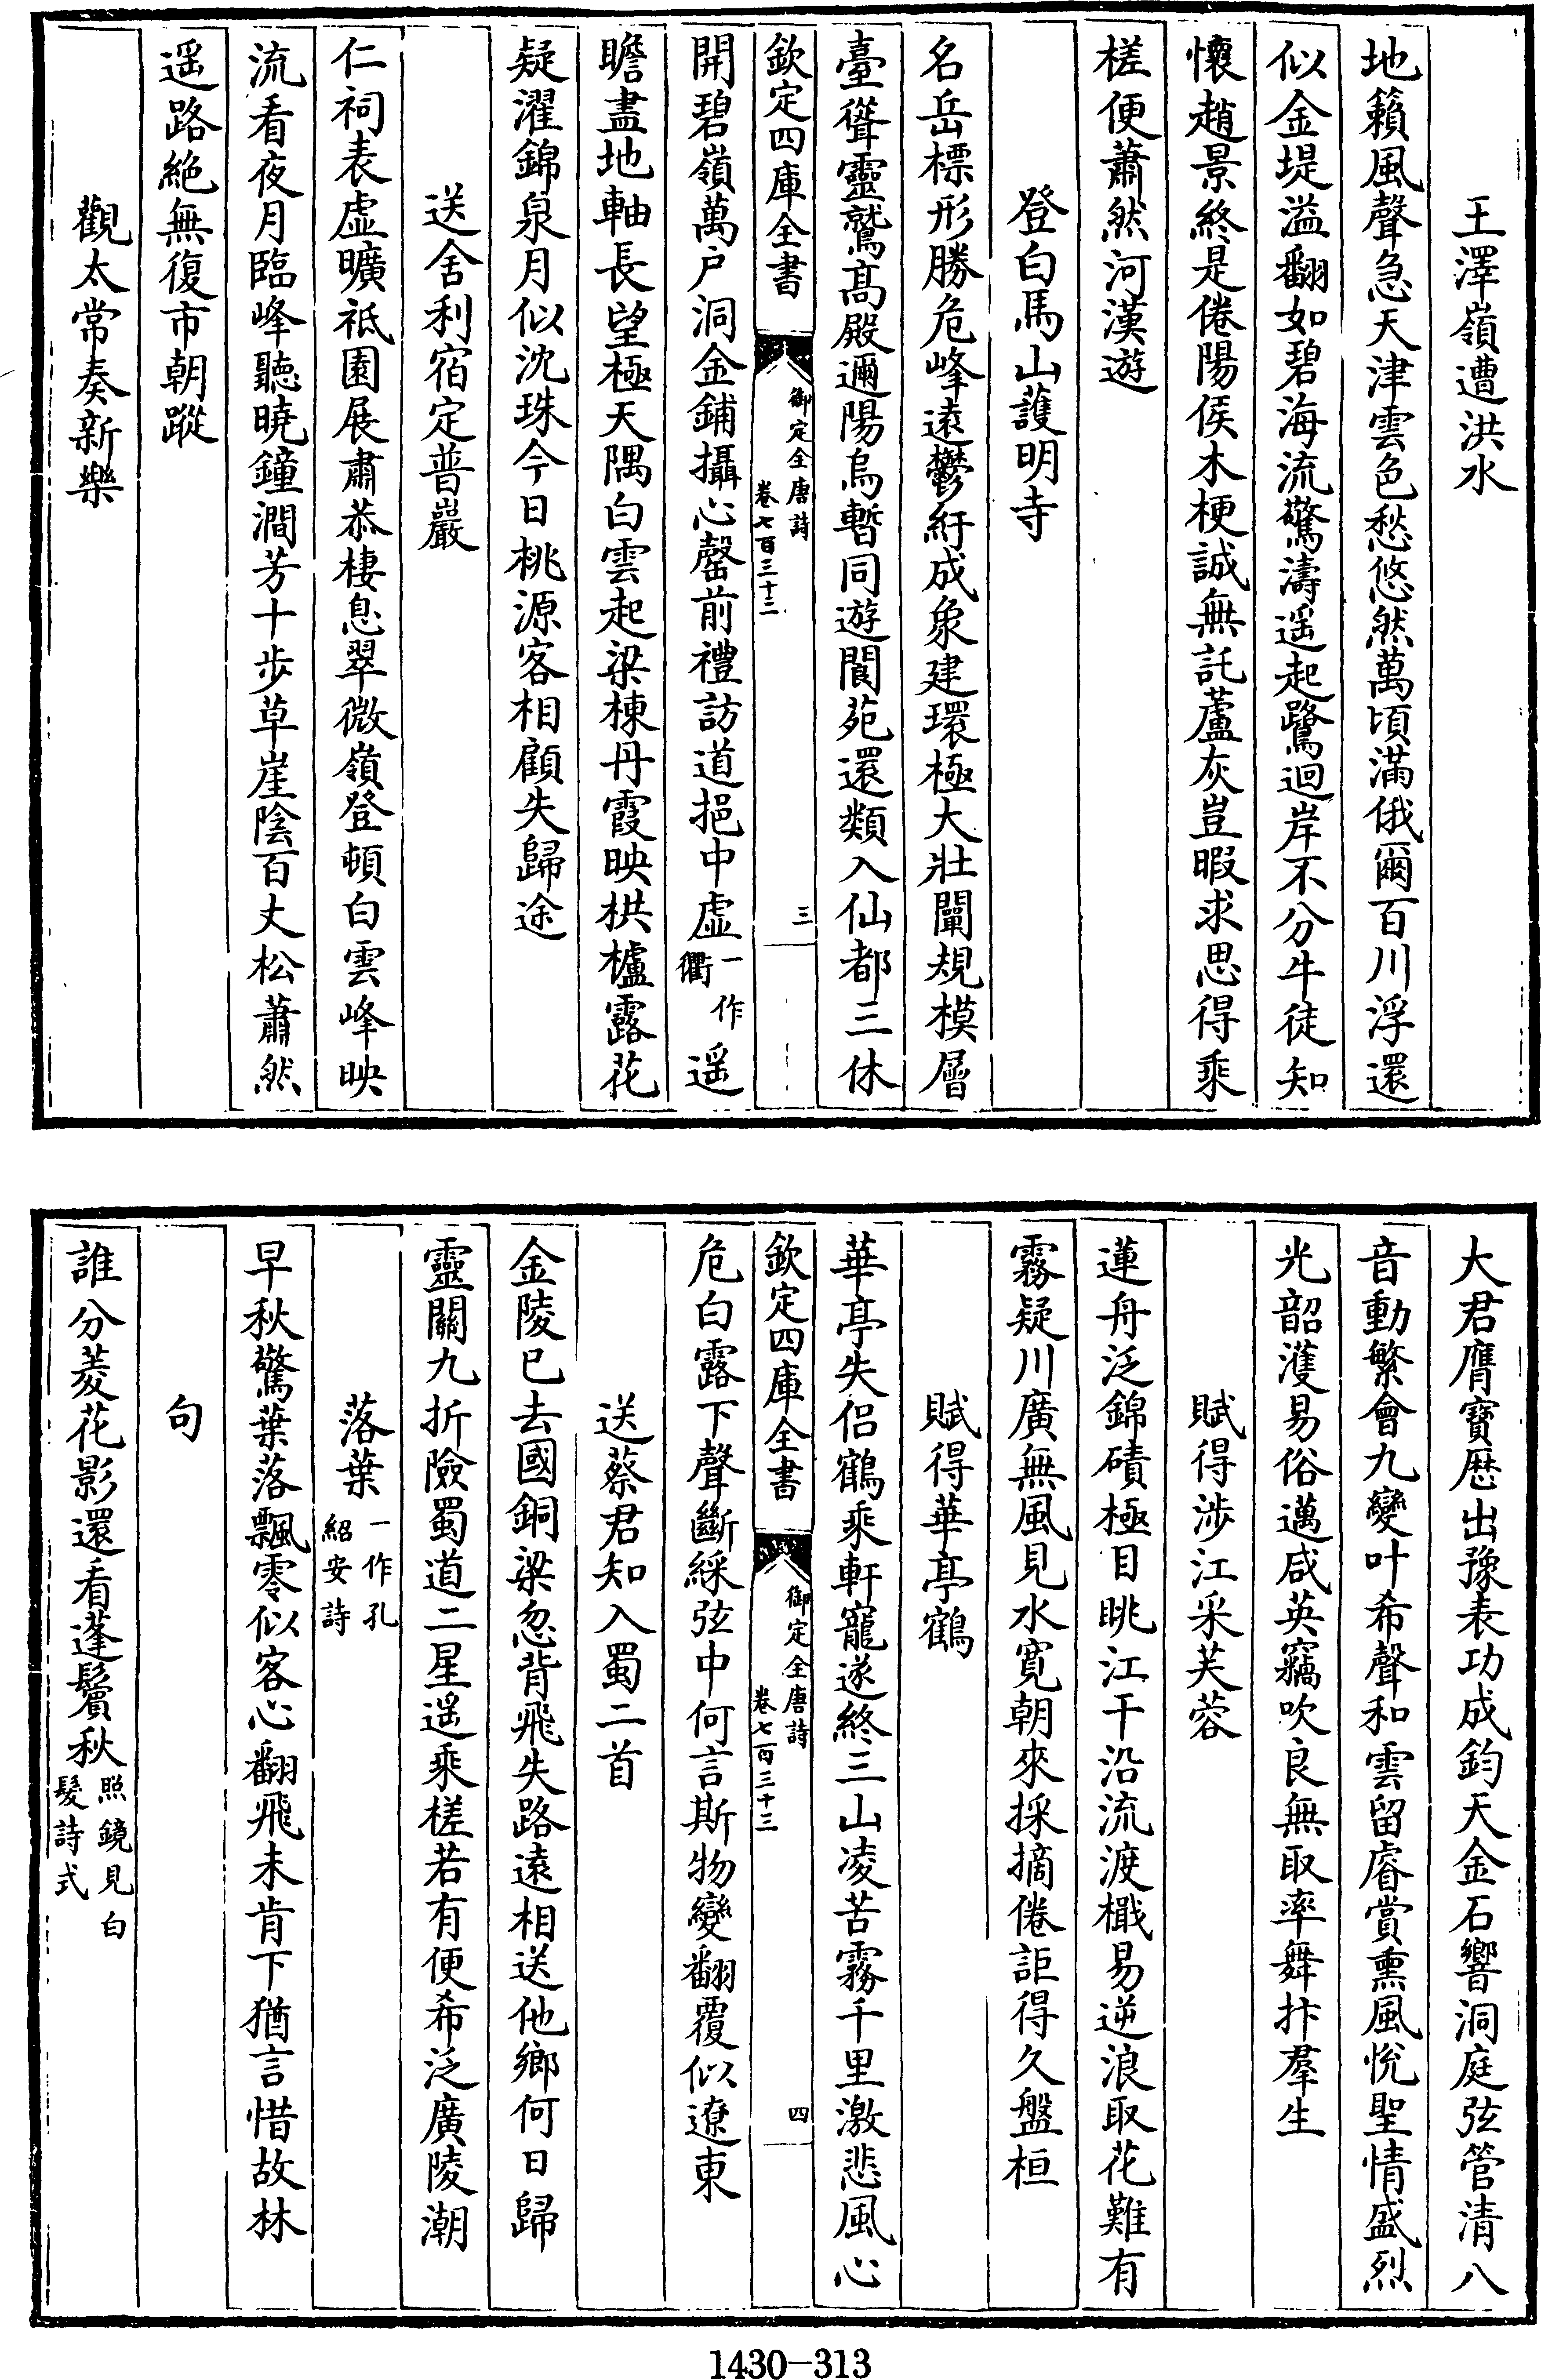 王澤嶺遭洪水
地籟風聲急天津雲色愁悠然萬頃滿俄爾百川浮還
似金堤溢翻如碧海流驚濤遥起鷺迴岸不分牛徒知
懷趙景終是倦陽侯木梗誠無託蘆灰豈暇求思得乘
槎便蕭然河漢遊
登白馬山䕶明寺
名岳標形勝危峰遠鬱紆成象建環極大壯闡規模層
臺聳靈鷲髙殿邇陽烏暫同遊閬苑還類入仙都三休
欽定四庫全書
御定全唐詩
卷七百三十三
三
開碧嶺萬户洞金鋪攝心罄前禮訪道挹中虚一作衢遥
瞻盡地軸長望極天隅白雲起梁棟丹霞映栱櫨露花
疑濯錦泉月似沈珠今日桃源客相顧失歸途
送舍利宿定普巖
仁祠表虚曠祗園展肅恭棲息翠微嶺登頓白雲峰映
流看夜月臨峰聽曉鐘澗芳十步草崖陰百丈松蕭然
遥路絶無復市朝蹤
觀太常奏新樂
大君膺寶厯出豫表功成鈞天金石響洞庭弦管清八
音動繁會九變叶希聲和雲留睿賞熏風恱聖情盛烈
光韶濩易俗邁咸英竊吹良無取率舞抃羣生
賦得涉江采芙蓉
蓮舟泛錦磧極目眺江干沿流渡檝易逆浪取花難有
霧疑川廣無風見水寛朝來採摘倦詎得久盤桓
賦得華亭鶴
華亭失侣鶴乘軒寵遂終三山凌苦霧千里激悲風心
欽定四庫全書
御定全唐詩
卷七百三十三
四
危白露下聲斷綵弦中何言斯物變翻覆似遼東
送蔡君知入蜀二首
金陵已去國銅梁忽背飛失路遠相送他鄉何日歸
靈關九折險蜀道二星遥乘槎若有便希泛廣陵潮
落葉一作孔紹安詩
早秋驚葉落飄零似客心翻飛未肯下猶言惜故林
句
誰分菱花影還看蓬鬢秋照鏡見白髮詩式
1430-313